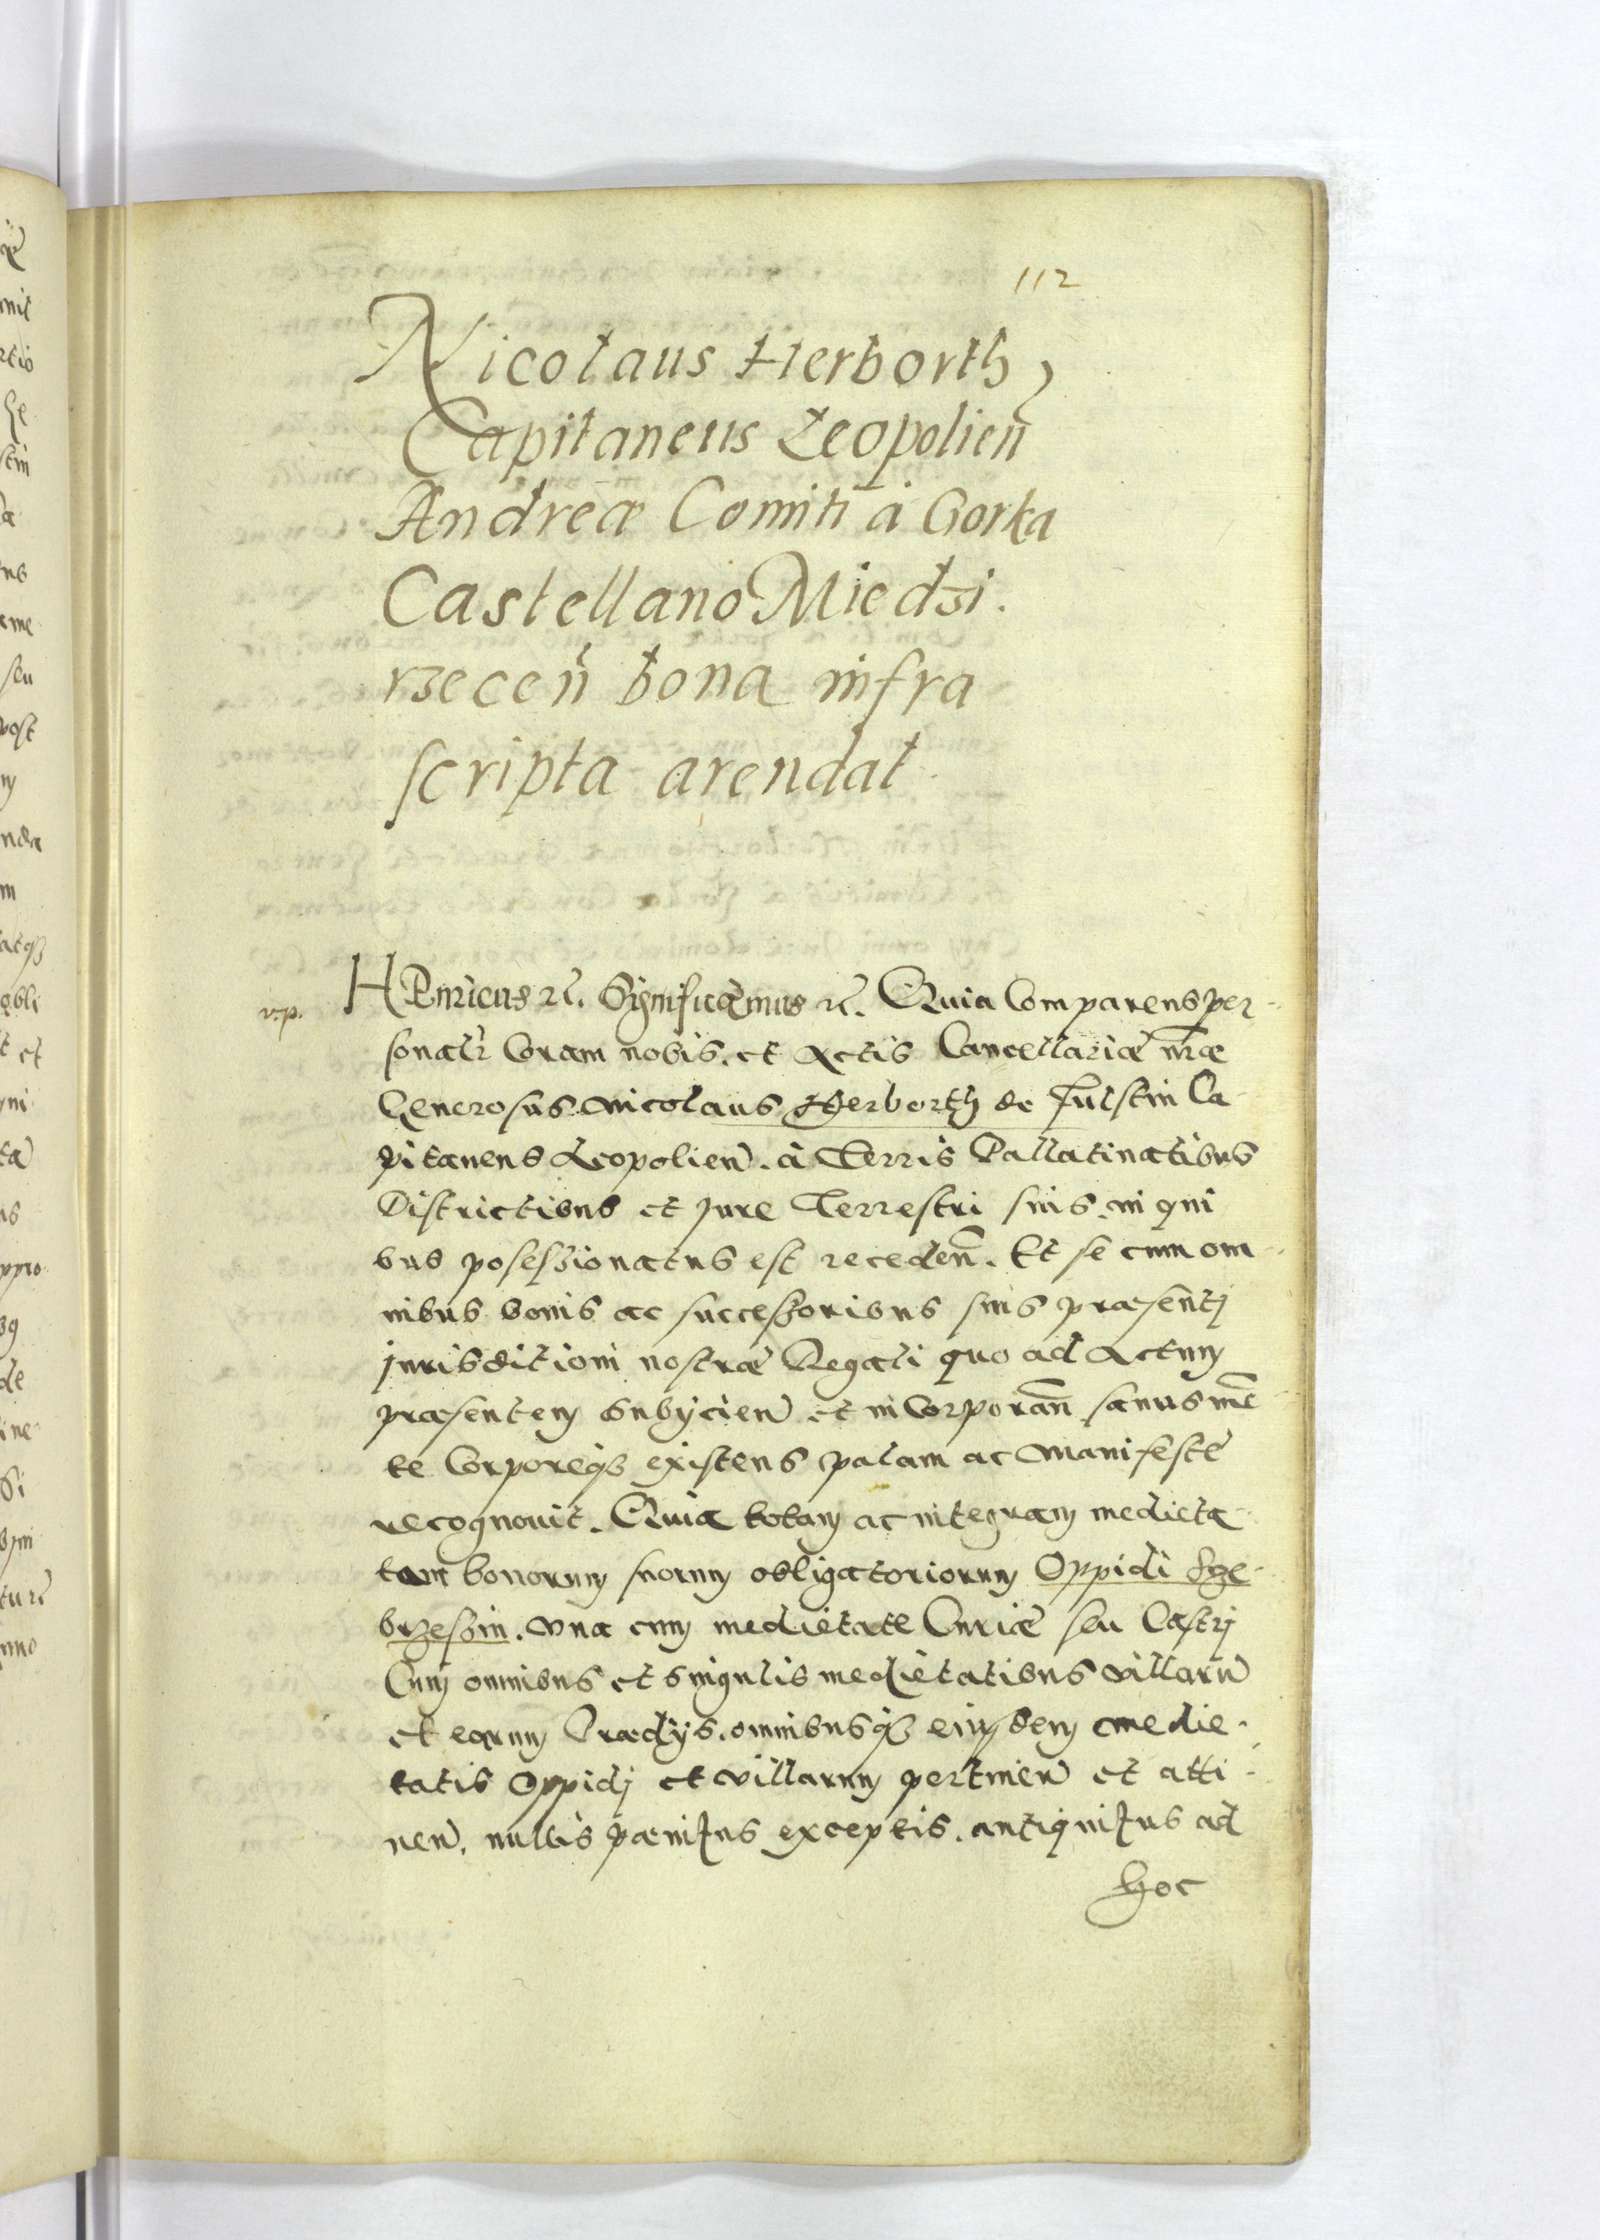 112
Nicolaus Herborth,
Capitaneus Leopolien̄
Andreæ Comiti à Gorka
Castellano Miedzi.
rzecen̄ bona infra
scripta arendat
v.p.
HEnricus etc. Significamus etc. Quia Comparens per-
sonalr̄ Coram nobis. et Actis Cancellariæ nr̄æ
Generosus Nicolaus Herborth de Fulstin Ca
pitaneus Leopolien̄. à Terris Pallatinatibus
Districtibus et jure Terrestri suis. in qui
bus posessionatus est receden̄. Et se cum om-
nibus bonis ac successoribus suis præsentj
jurisditioni nostræ Regali quo ad Actum
præsentem Subijcien̄ et inCorporan̄ sanus mē
te Corporeqз existens palam ac manifestè
recognouit. Quia totam ac integram medieta-
tem bonorum suorum obligatoriorum Oppidi Sze-
brzessin. vna cum medietate Curiæ seu Castrj
Cum omnibus et singulis medietatibus villarū
et earum Prædijs. omnibusqз eiusdem medie-
tatis Oppidj et villarum pertinen̄ et atti-
nen̄. nullis pænitus exceptis. antiquitus ad
hoc